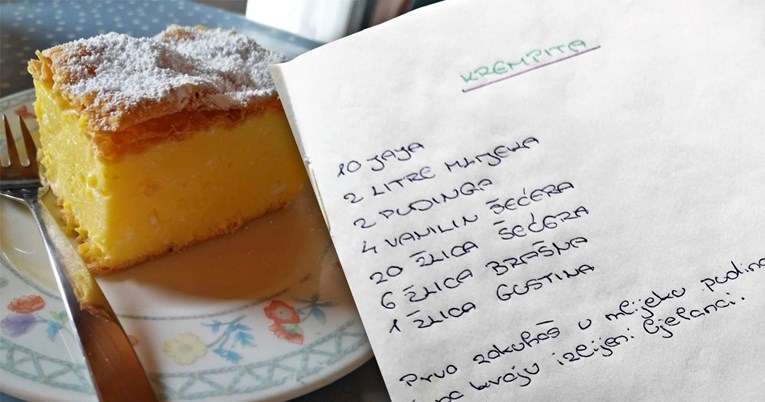 KREMPITA
10 JAJA
2 LITRE MLIJEKA
2 PUDINGA
4 VANILIN ŠEĆERA
20 ŽLICA ŠEĆERA
6 ŽLICA BRAŠNA
1 ŽLICA GUSTINA
Prvo zakuhaš u mlijeku puding
na kraju izlijeni bjelanci.